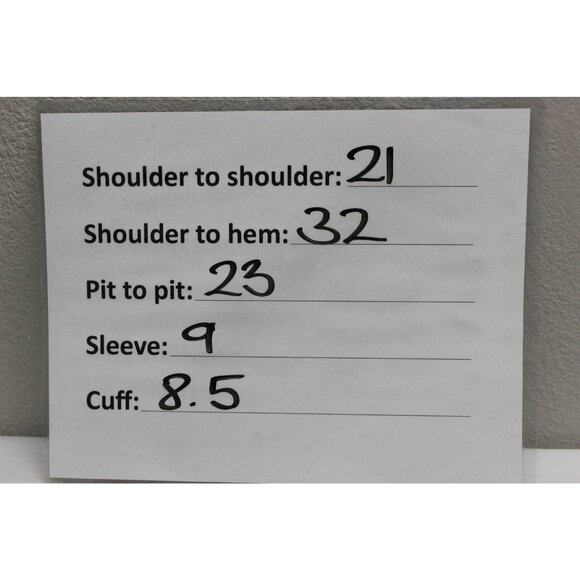 Shoulder to shoulder: 21
Shoulder to hem: 32
Pit to pit: 23
Sleeve: 9
Cuff: 8.5